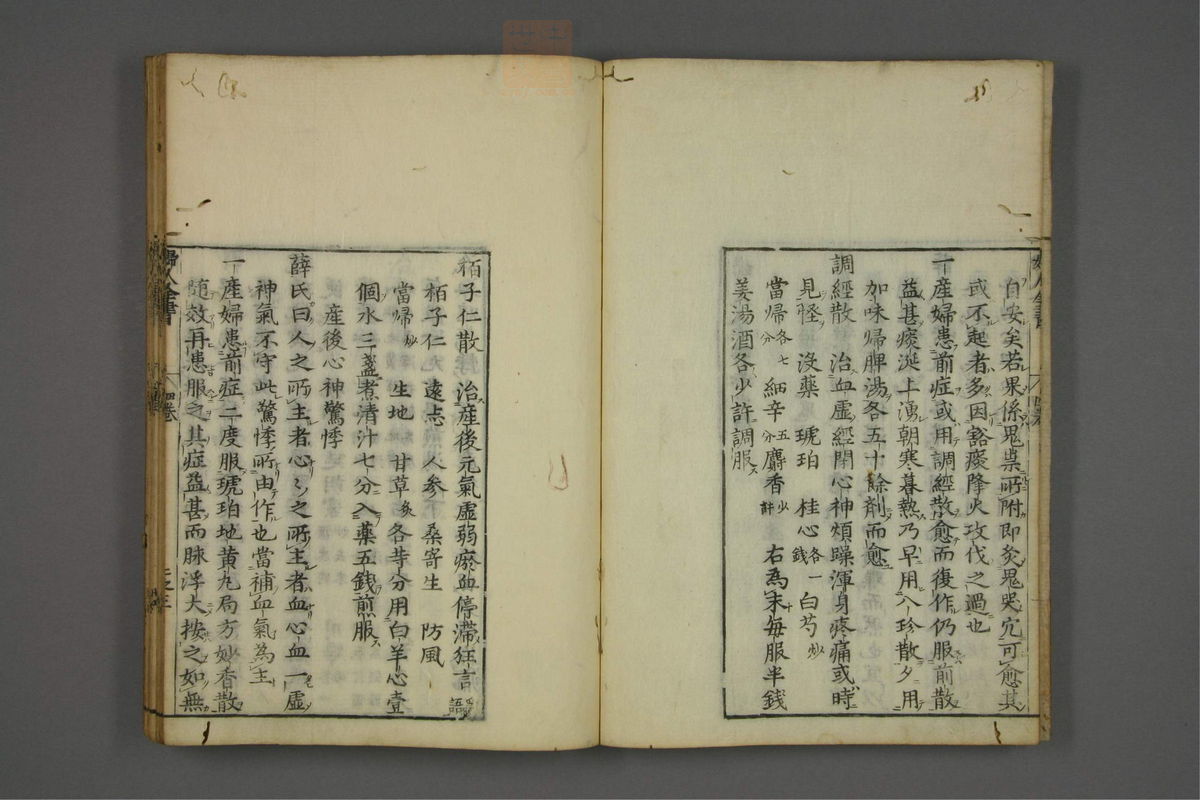 自安矣若果係鬼祟所附即灸鬼哭穴可愈其
或不起者多因豁痰降火攻伐之過也
一産婦患前症或用調經散愈而復作仍服前散
益甚痰涎上湧朝寒暮熱乃早用八珍散夕用
加味歸脾湯各五十餘劑而愈
調經散 治血虚經閉心神煩躁渾身疼痛或時
見怪 沒藥 琥珀 桂心各一錢 白芍炒
當帰各七分 細辛五分 麝香少許 右為末每服半錢
姜湯酒各少許調服
栢子仁散 治産後元氣虚弱瘀血停滞狂言語
栢子仁 遠志 人参 桑寄生 防風
當帰炒 生地 甘草炙 各等分用白羊心壹
個水三盞煮清汁七分入藥五錢煎服
産後心神驚悸
薛氏曰人之所主者心心之所主者血心血一虚
神氣不守此驚悸所由作也當補血氣為主
一産婦患前症二度服琥珀地黄丸局方妙香散
随效再患服之其症益甚而脉浮大按之如無
婦人全書 四巻